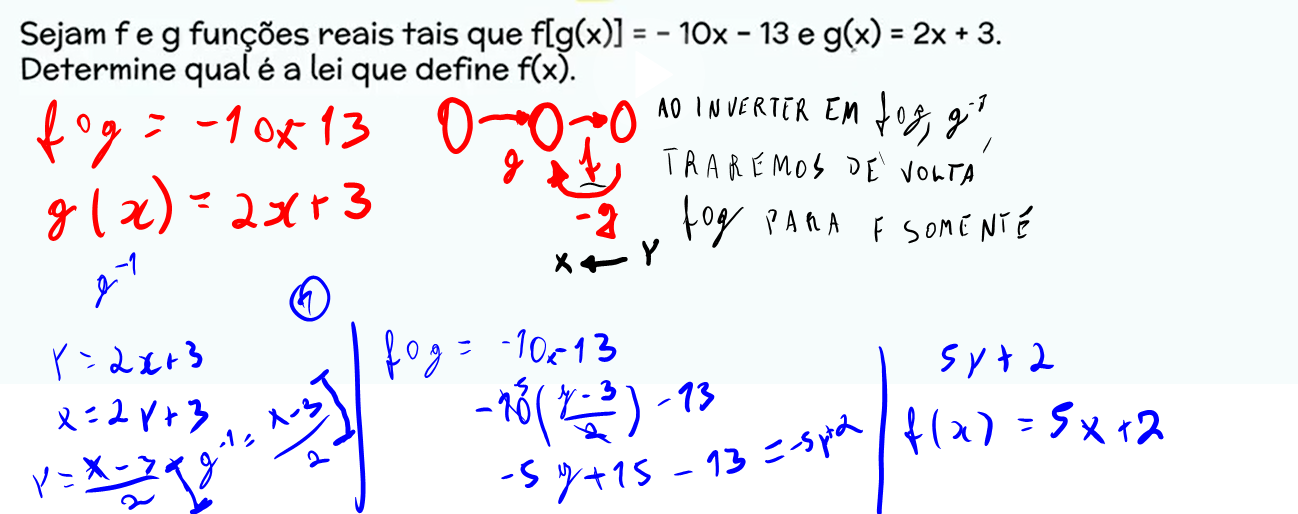 Sejam f e g funções reais tais que f[g(x)] = – 10x – 13 e g(x) = 2x + 3.
Determine qual é a lei que define f(x).
fog = -10x-13
g(x) = 2x+3
g f
-g
X ← Y
AO INVERTER EM fog, g⁻¹,
TRAREMOS DE VOLTA
fog PARA F SOMENTE
g⁻¹
Y = 2x+3
x = 2Y+3
Y = x-3/2
g⁻¹ = x-3/2
fog = -10x-13
-10⁵(y-3/2) -13
-5y+15 - 13 = -5y+2
5y+2
f(x) = 5x+2